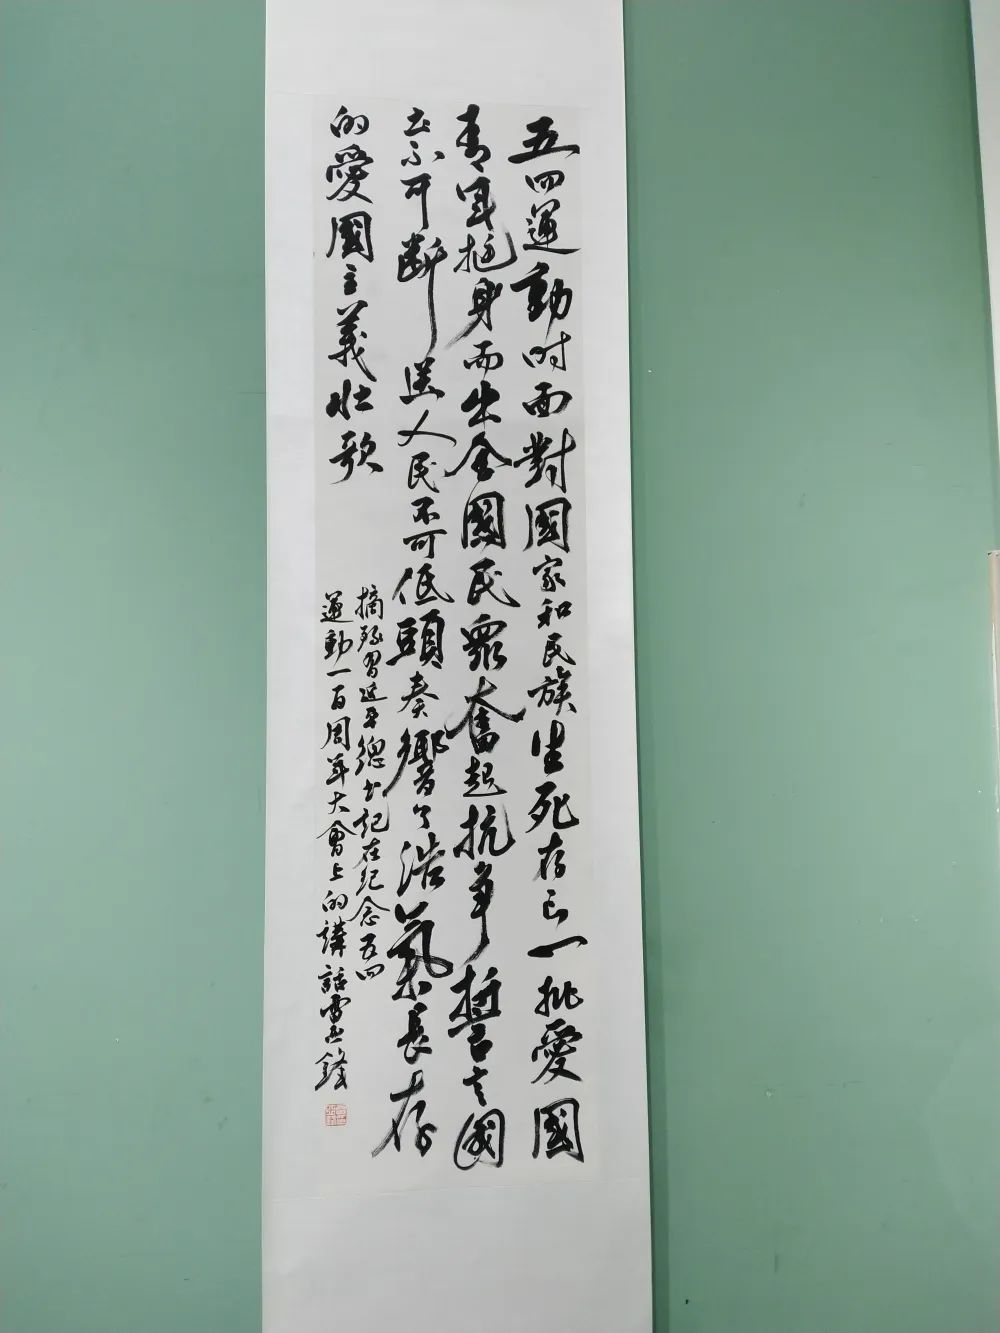 五四運動时面對國家和民族生死存亡一批愛國
青年挺身而出全國民眾奮起抗爭誓言國
土不可断送人民不可低頭奏響了浩氣長存
的愛國主義壯歌
摘錄習近平總书記在纪念五四
運動一百周年大會上的講話